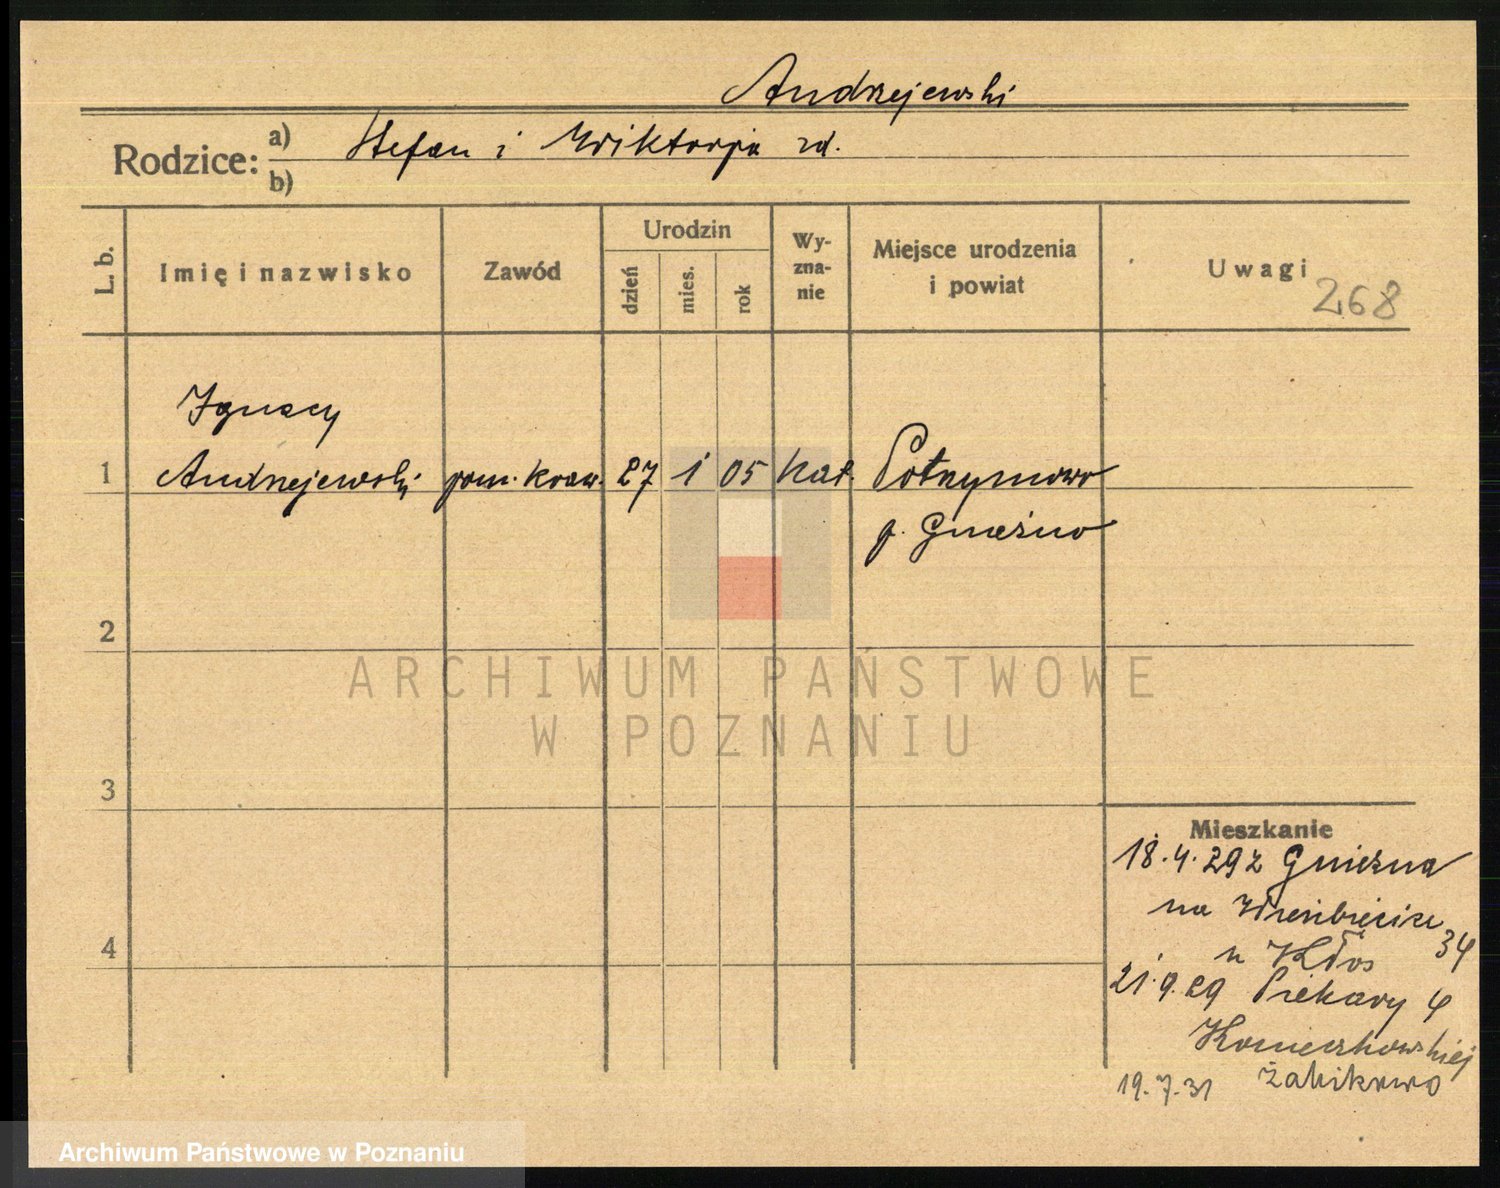 Andrzejewski
Rodzice: a) Stefan i Wiktorja zd.
b)
L. b.
Imię i nazwisko
Zawód
Urodzin
dzień
mies.
rok
Wy-
zna-
nie
Miejsce urodzenia
i powiat
Uwagi
268
Ignacy
1 Andrzejewski pom. kraw. 27 1 05 kat. Potrzymowo
p. Gniezno
2
ARCHIWUM PAŃSTWOWE
W POZNANIU
3
Mieszkanie
18.4.29 z Gniezna
na Wierzbięcice 34
u Kłos
4
21.9.29 Piekary 4
Konieczkowskiej
19.7.31 Żabikowo
Archiwum Państwowe w Poznaniu